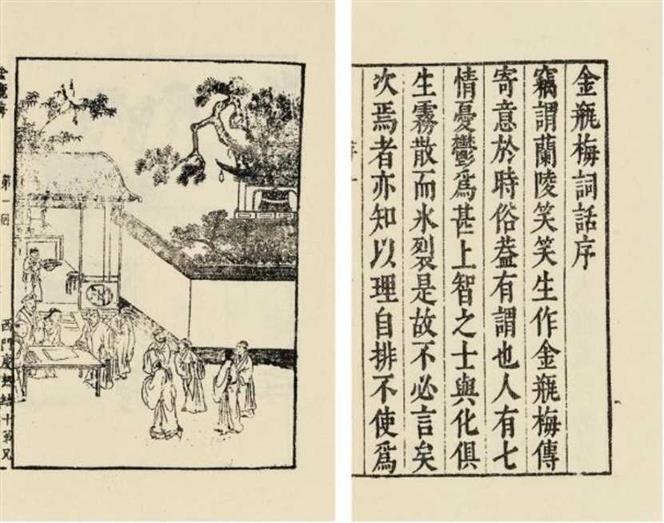 金瓶梅詞話序
竊謂蘭陵笑笑生作金瓶梅傳
寄意於時俗葢有謂也人有七
情憂鬱爲甚上智之士與化俱
生霧散而氷裂是故不必言矣
次焉者亦知以理自排不使爲
金瓶梅 第一回 西門慶熱結十弟兄